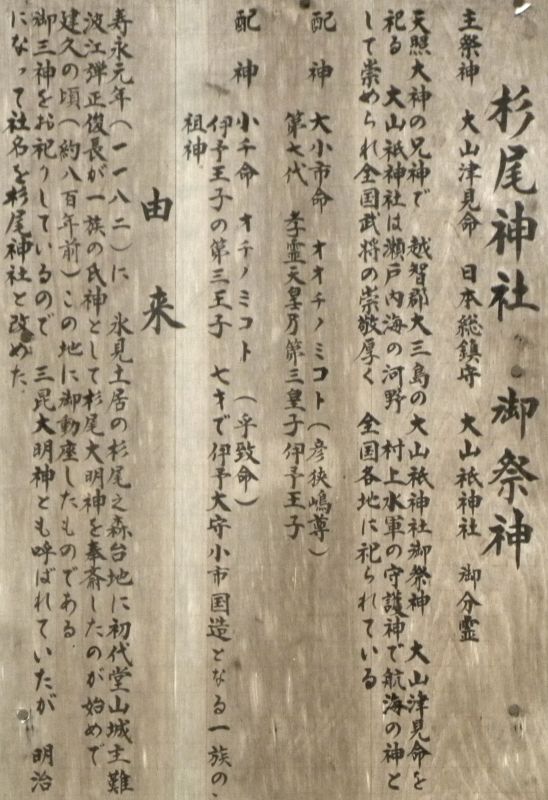 杉尾神社 御祭神
主祭神 大山津見命 日本総鎮守 大山祇神社 御分霊
天照大神の兄神で 越智郡大三島の大山祇神社御祭神 大山津見命を
祀る 大山祇神社は瀬戸内海の河野 村上水軍の守護神で航海の神と
して崇められ全国武将の崇敬厚く 全国各地に祀られている
配神 大小市命 オオチノミコト(彦狭嶋尊)
第七代 孝霊天皇乃第三皇子伊予王子
配神 小千命 オチノミコト(乎致命)
伊予王子の第三王子 七才で伊予大守小市国造となる一族の
祖神
由来
寿永元年(一一八二)に 氷見土居の杉尾之森台地に初代堂山城主難
波江弾正復長が一族の氏神として杉尾大明神を奉斎したのが始めで
建久の頃(約八百年前)この地に御動座したものである
御三神をお祀りしているので 三毘大明神とも呼ばれていたが 明治
になって社名を杉尾神社と改めた